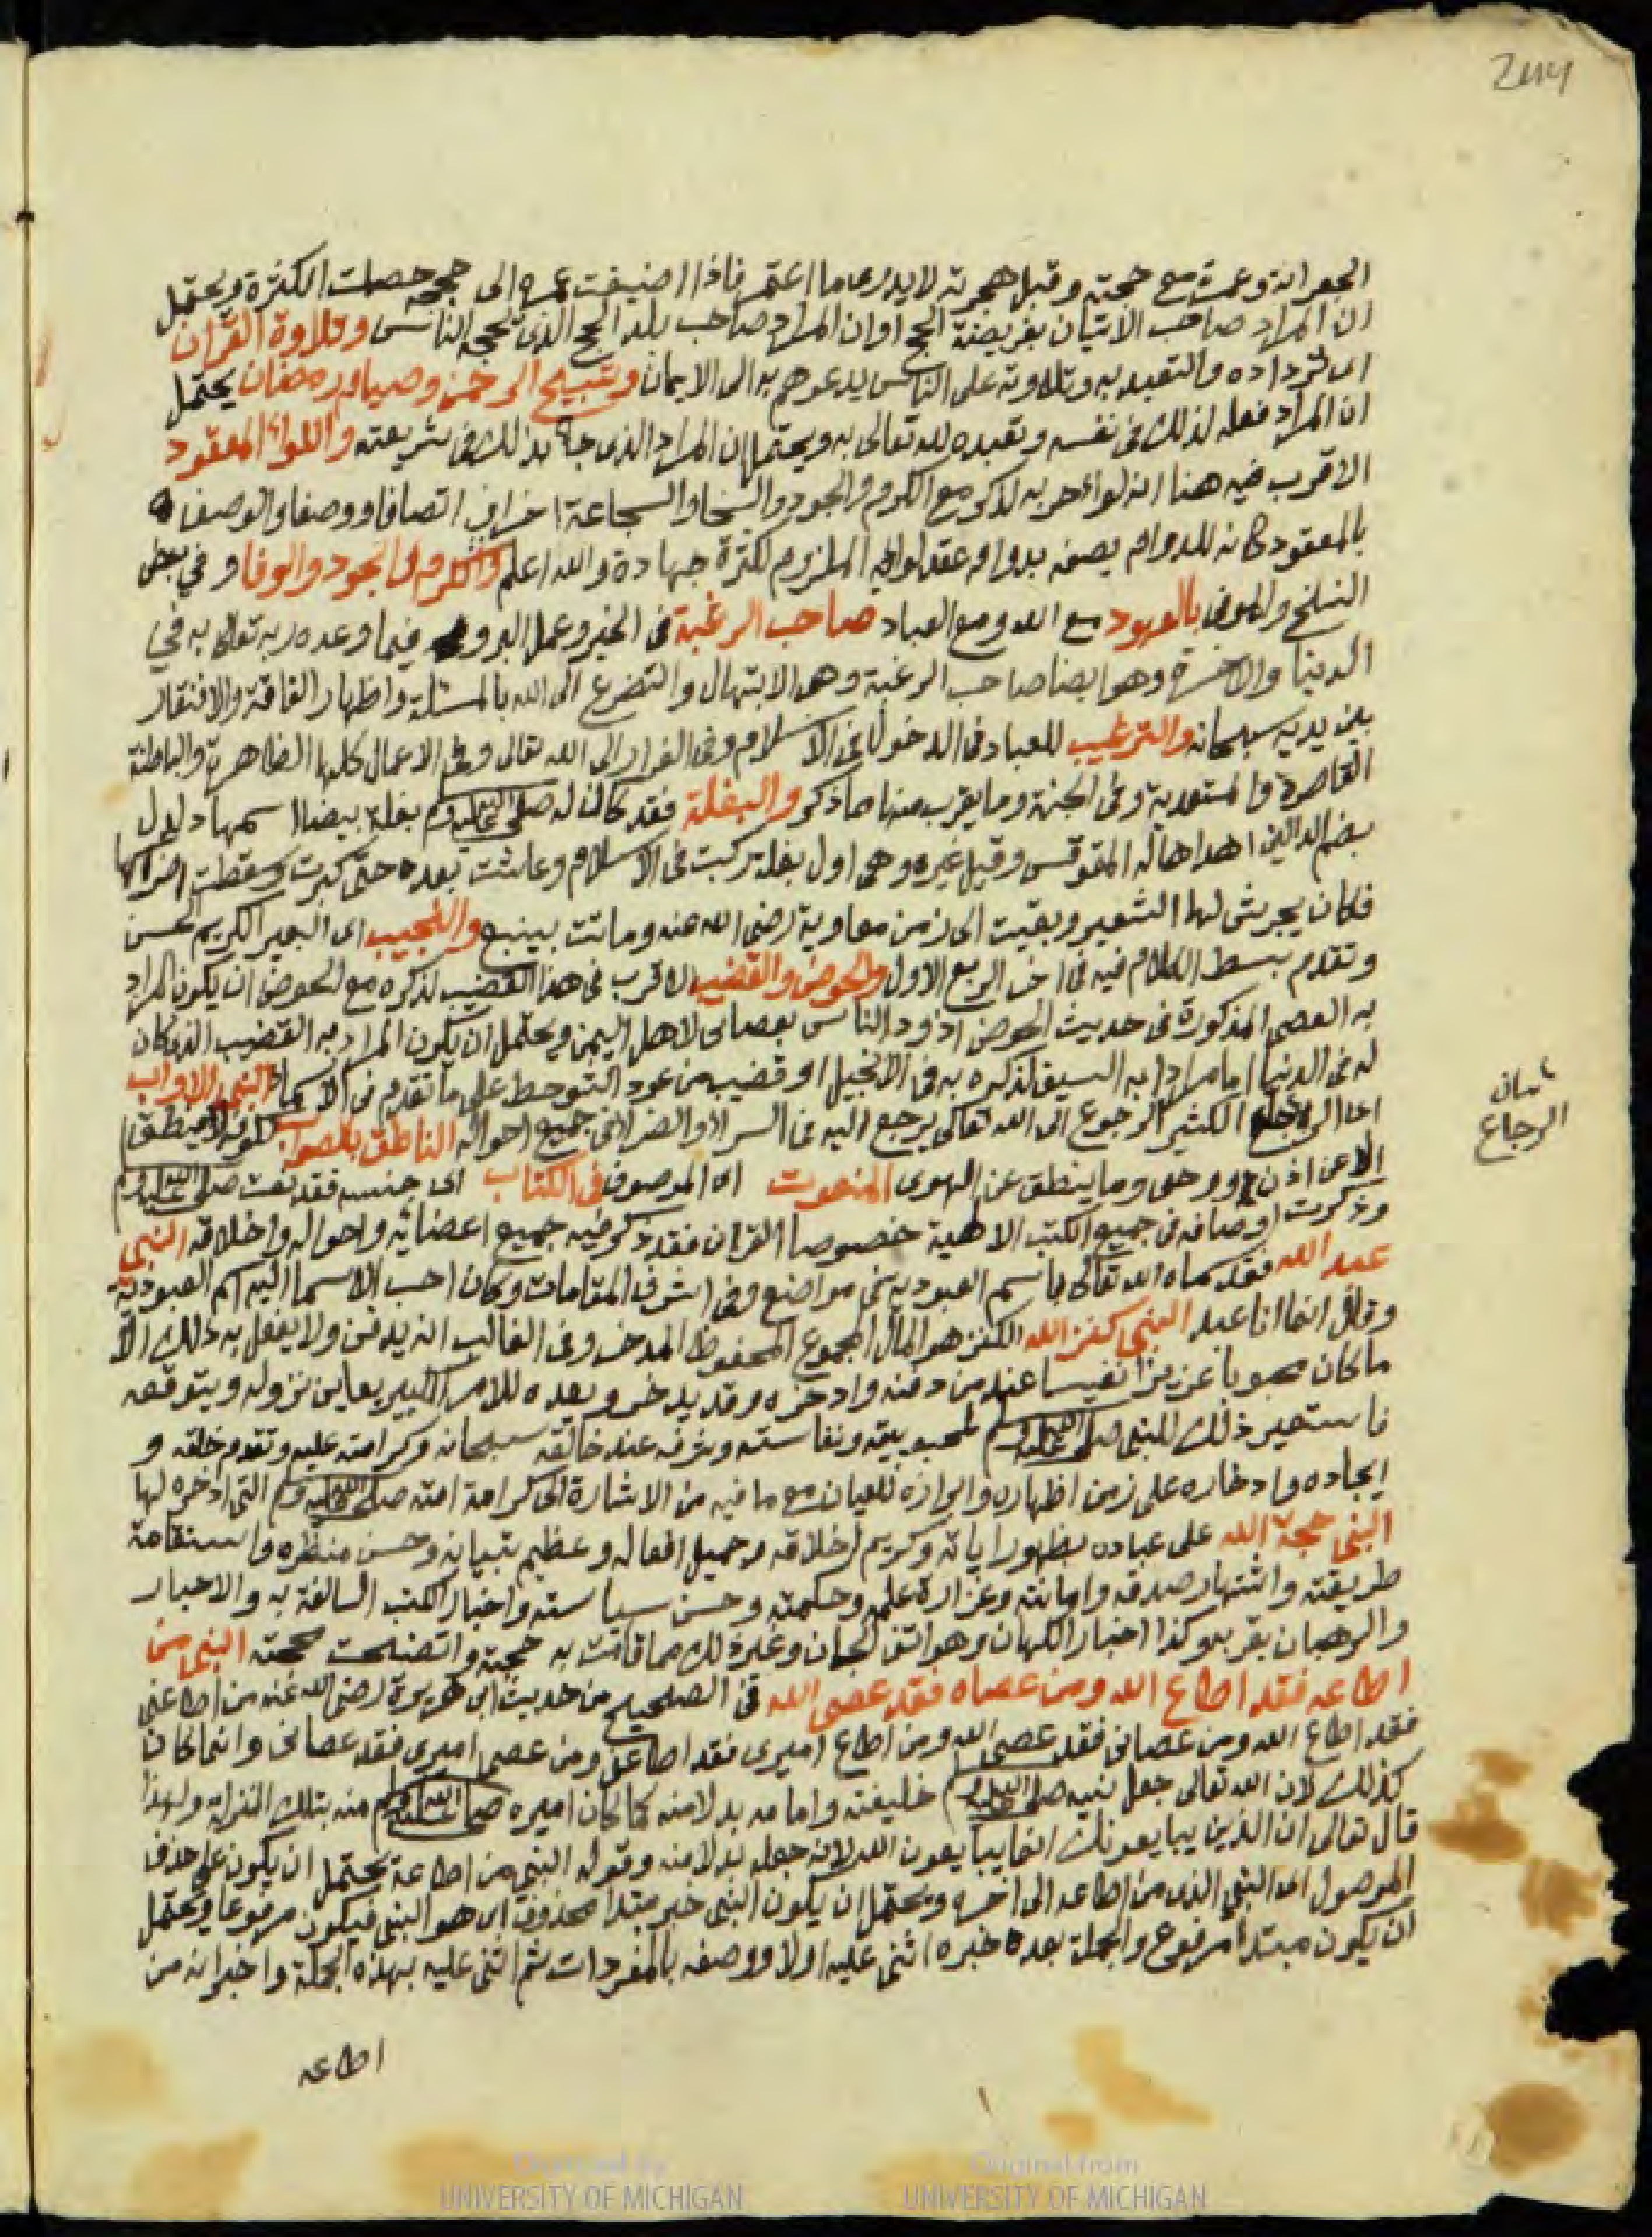 244
الجعرانة وعمرة مع حجته وقبل هجرته لا يدرى ما اعتمر فاذا اضيفت عمره الى حججه حصلت الكثرة ويحتمل
ان المراد صاحب الاتيان بفريضة الحج او ان المراد صاحب بلد الحج الذى يحجه الناس وتلاوة القران
اى ترداده والتعبد به وتلاوته على الناس يدعوهم به الى الايمان وتسبيح الرحمن وصيام رمضان يحتمل
ان المراد فعله لذلك فى نفسه وتعبده لله تعالى به ويحتمل ان المراد الذى جا بذلك فى شريعته واللواء المعقود
الاقرب فيه هنا انه لواء حربه لذكره مع الكرم والجود والسخا والشجاعة اتصافا ووصفا والوصف
بالمعقود كانه للدوام يصفه بدوام عقد لوائه الملزوم لكثرة جهاده والله اعلم والكرم والجود والوفا وفي بعض
النسخ والموفى بالعهود مع الله ومع العباد صاحب الرغبة فى الخير وعمل البر وفيما وعده ربه تعالى به في
الدنيا والاخرة وهو ايضا صاحب الرغبة وهى الابتهال والتضرع الى الله بالمسئلة واظهار الفاقة والافتقار
بين يديه سبحانه والترغيب للعباد فى الدخول فى الاسلام وفى الفرار الى الله تعالى وفى الاعمال كلها الظاهرة والباطنة
القاصرة والمتعدية وفى الجنة وما يقرب منها مما ذكر والبغلة فقد كان له صلى الله عليه وسلم بغلة بيضا اسمها دلدل
بضم الدالين اهداها له المقوقس وقيل غيره وهى اول بغلة ركبت فى الاسلام وعاشت بعده حتى كبرت وسقطت اضراسها
فكان يجرش لها الشعير وبقيت الى زمن معاوية رضى الله عنه وماتت بينبع والنجيب اى البعير الكريم الحسن
وتقدم بسط الكلام فيه فى اخر الربع الاول والحوض والقضيب الاقرب فى هذا القضيب لذكره مع الحوض ان يكون المراد
به العصى المذكورة فى حديث الحوض اذود الناس بعصاى لاهل اليمن ويحتمل ان يكون المراد به القضيب الذى كان
له فى الدنيا اما مرادا به السيف لذكره به فى الانجيل او قضيب من عود الشوحط على ما تقدم فى الاسماء النبى الاواب
اى الرجاع الكثير الرجوع الى الله تعالى يرجع اليه فى السرا والضرا فى جميع احواله الناطق بالصواب لكونه لا ينطق
الا عن اذن ووحى وما ينطق عن الهوى المنعوت اى الموصوف فى الكتاب اى جنسه فقد نعت صلى الله عليه وسلم
وذكرت اوصافه فى جميع الكتب الالهية خصوصا القران فقد ذكر فيه جميع اعضائه واحواله واخلاقه النبى
عبد الله فقد سماه الله تعالى باسم العبودية فى مواضع وفى اشرف المقامات وكان احب الاسما اليه اسم العبودية
وقال انما انا عبد النبى كنز الله الكنز هو المال المجموع المحفوظ المدخر وفى الغالب انه يدفن ولا يفعل به ذلك الا
ما كان محبوبا عزيزا نفيسا عند من دفنه وادخره وقد يدخره ويعده للامر الكبير يعاين نزوله ويتوقعه
فاستعير ذلك للنبى صلى الله عليه وسلم لمحبوبيته ونفاسته وشرفه عند خالقه سبحانه وكرامته عليه وتقدم خلقه و
ايجاده وادخاره على زمن اظهاره وابرازه للعيان مع ما فيه من الاشارة الى كرامة امته صلى الله عليه وسلم التى ادخره لها
النبى حجة الله على عباده بظهور اياته وكريم اخلاقه وجميل افعاله وعظيم تبيانه وحسن منظره واستقامة
طريقته واشتهار صدقه وامانته وغزارة علمه وحكمته وحسن سياسته واخبار الكتب السالفة به والاحبار
والرهبان بقربه وكذا اخبار الكهان وهواتف الجان وغير ذلك مما قامت به حجته واتضحت محجته النبى من
اطاعه فقد اطاع الله ومن عصاه فقد عصى الله فى الصحيح من حديث ابى هريرة رضى الله عنه من اطاعنى
فقد اطاع الله ومن عصانى فقد عصى الله ومن اطاع اميرى فقد اطاعنى ومن عصى اميرى فقد عصانى وانما كان
كذلك لان الله تعالى جعل نبيه صلى الله عليه وسلم خليفته وامامه بدلا منه كما كان اميره صلى الله عليه وسلم منه بتلك المنزلة ولهذا
قال تعالى ان الذين يبايعونك انما يبايعون الله لانه جعله بدلا منه وقوله النبى من اطاعه يحتمل ان يكون على حذف
الموصول اى النبى الذى من اطاعه الى اخره ويحتمل ان يكون النبى خبر مبتدا محذوف اى هو النبى فيكون مرفوعا ويحتمل
ان يكون مبتدا مرفوع والجملة بعده خبره اثنى عليه اولا ووصفه بالمفردات ثم اثنى عليه بهذه الجملة واخبر انه من
اطاعه
بيان
الرجاع
Digitized by
UNIVERSITY OF MICHIGAN
Original from
UNIVERSITY OF MICHIGAN